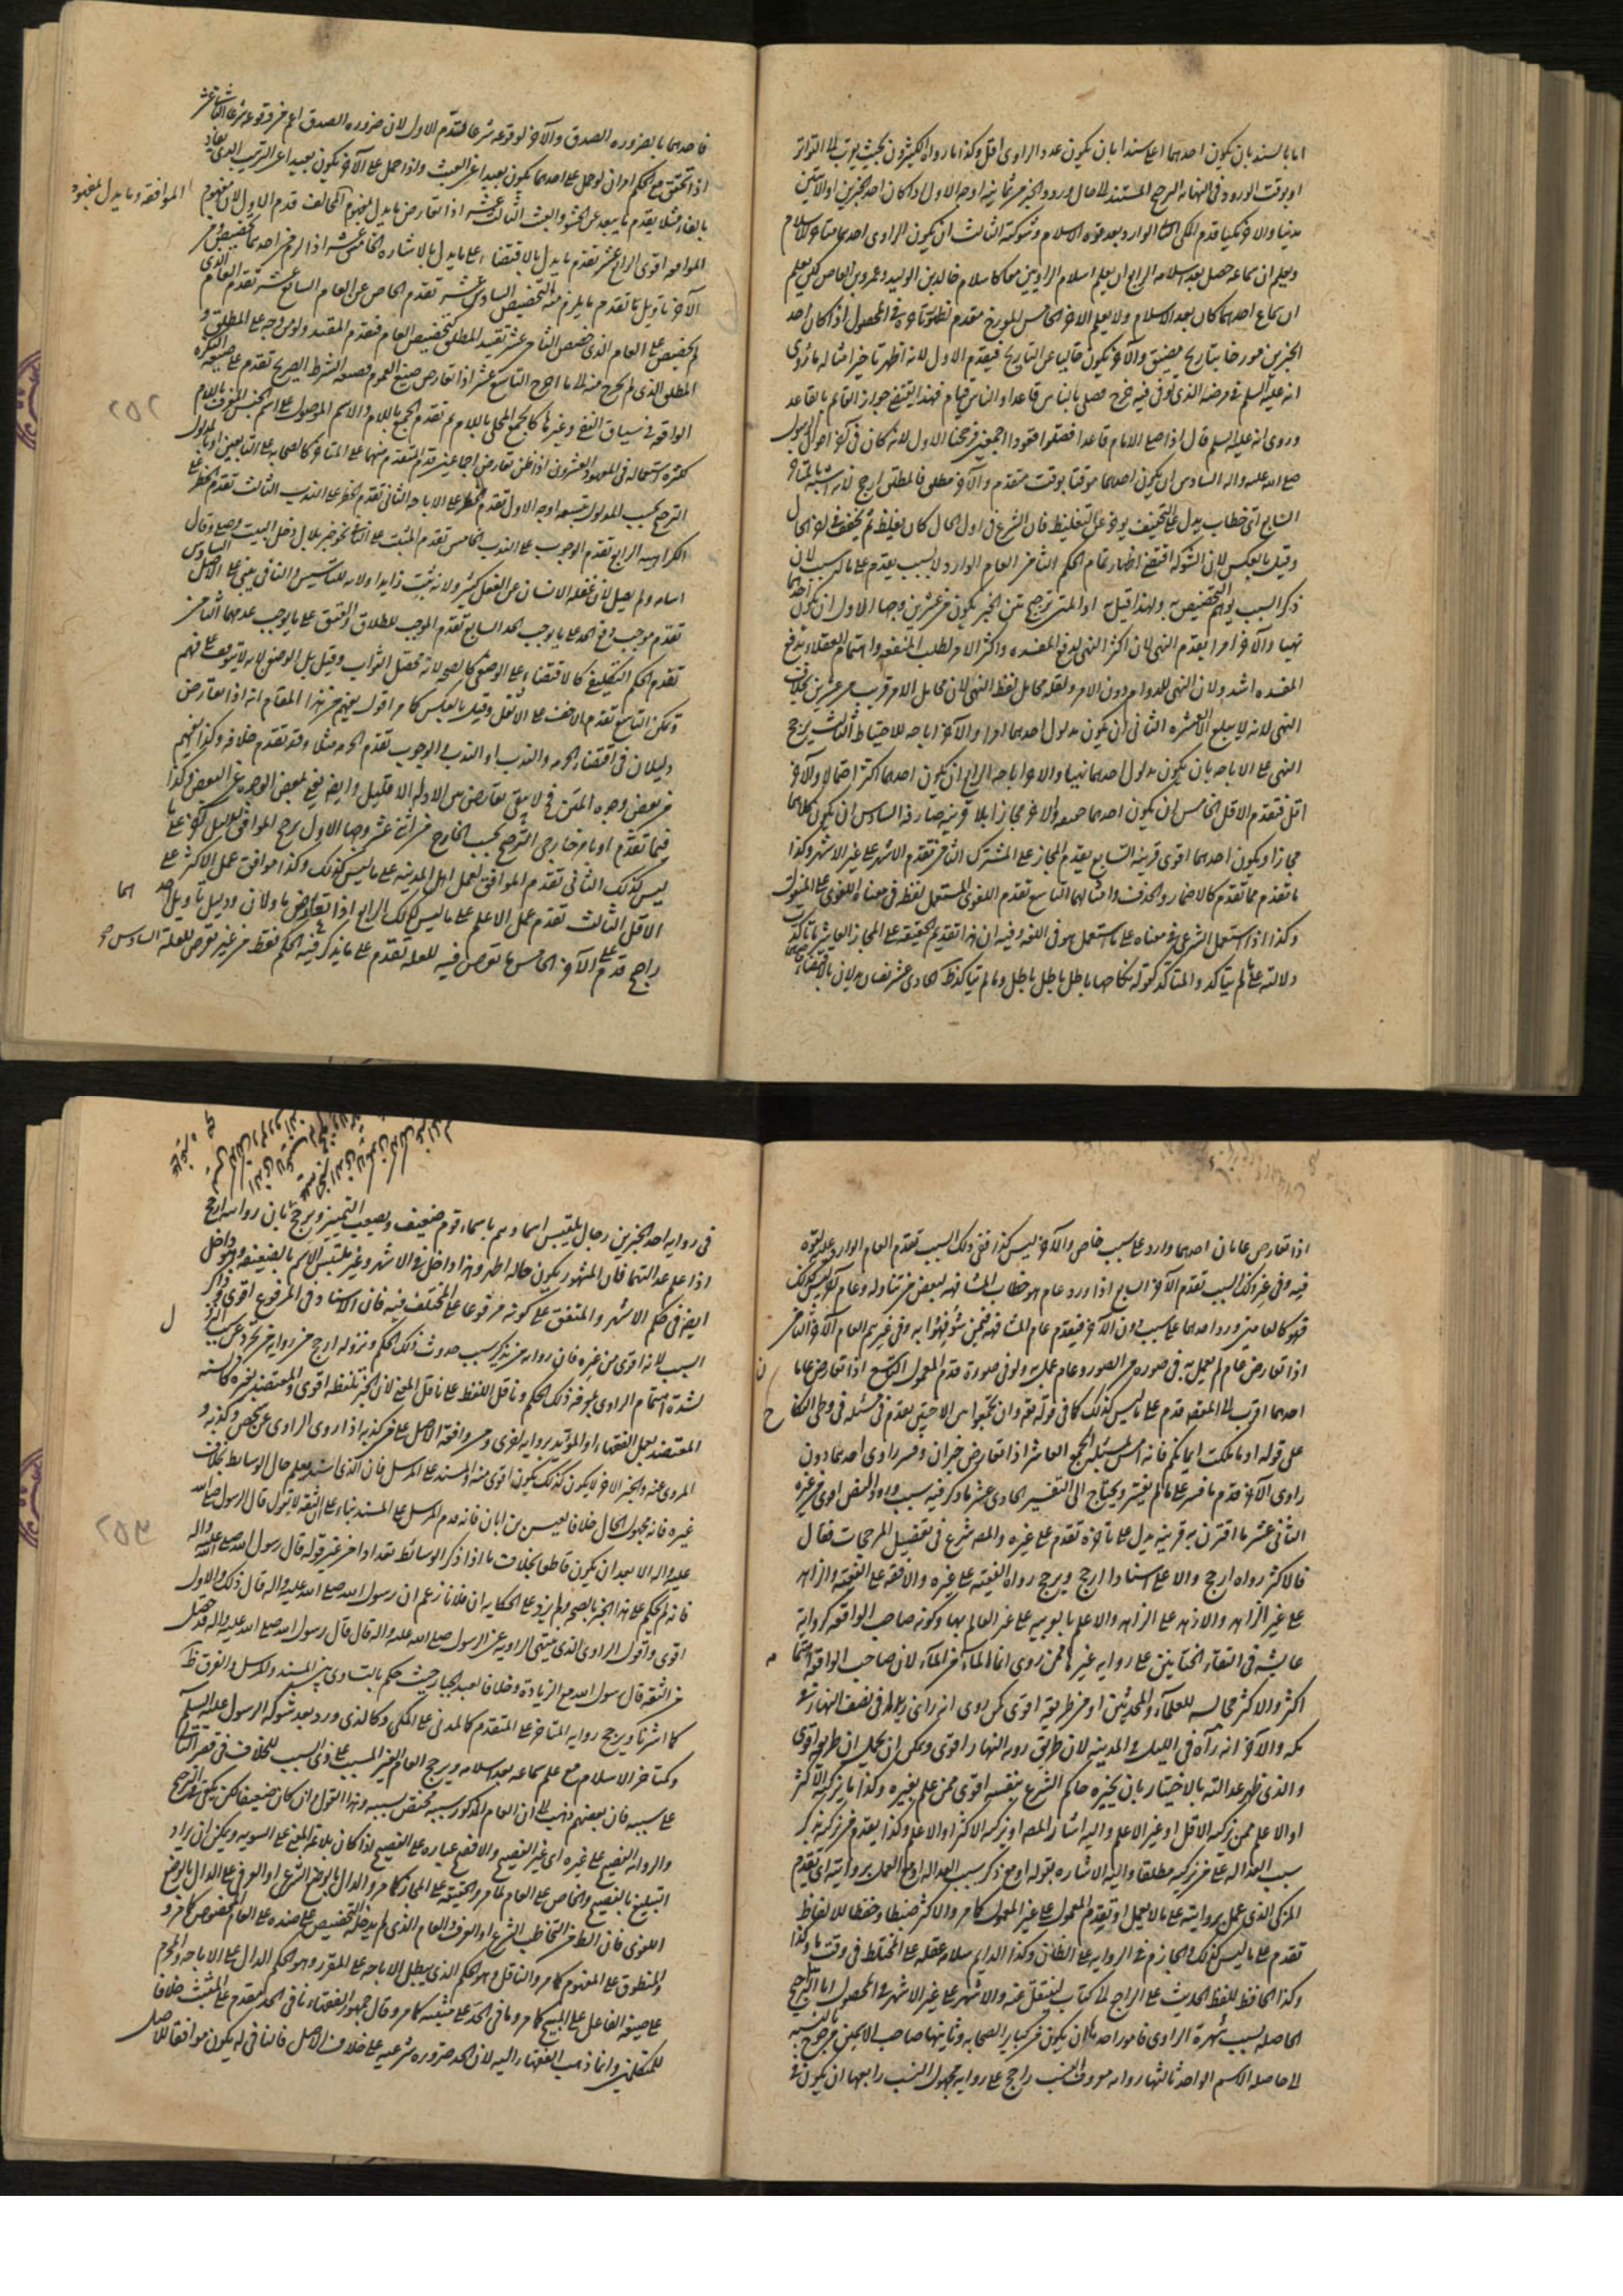 اما بالسند بان يكون احدهما اعلى سندا بان يكون عدد الراوى اقل وكذا ما رواه الكثيرون بحيث يقرب الى التواتر
او بوقت الورود فى النهايه الترجيح المستند الى حال ورود الخبر من ثمانيه اوجه الاول اذا كان احد الخبرين او الآيتين
مدنيا والآخر مكيا قدم
وبعد قوه الاسلام وشوكته الثالث ان يكون الراوى احدهما متاخر الاسلام
ويعلم ان سماعه حصل بعد اسلامه الرابع ان يعلم اسلام الراويين معا كاسلام خالد بن الوليد وعمرو بن العاص لكن يعلم
ان سماع احدهما كان بعد الاسلام ولا يعلم الآخر الخامس المورخ متقدم
فى المحصول اذا كان احد
الخبرين مورخا بتاريخ مضيق والآخر يكون خاليا عن التاريخ فيقدم الاول لانه اظهر تاخيرا مثاله ما روى
انه عليه السلم فى مرضه الذى توفى فيه خرج فصلى بالناس قاعدا والناس قيام فهذا يقتضى جواز القائم بالقاعد
وروى انه عليه السلم قال اذا صلى الامام قاعدا فصلوا قعودا اجمعين فرجحنا الاول لانه كان فى آخر احوال الرسول
صلى الله عليه واله السادس ان يكون احدهما موقتا بوقت متقدم والآخر مطلق فالمطلق ارجح لانه اشبه بالمتاخر
السابع اتى خطاب يدل على التخفيف يوخر عن التغليظ فان الشرع فى اول الحال كان يغلظ ثم يخفف فى آخر الحال
وقيل بالعكس لان الشوكه اقتضى اظهار تمام الحكم الثامن العام الوارد لا لسبب يقدم على ما له سبب لان
ذكر السبب يوهم التخصيص به ولهذا قيل به او المتن ترجيح متن الخبر يكون من عشرين وجها الاول ان يكون احدهما
نهيا والآخر امرا يقدم النهى لان اكثر النهى لدفع المفسده واكثر الامر لطلب المنفعه واهتمام العقلاء بدفع
المفسده اشد ولان النهى للدوام دون الامر ولقله محامل لفظ النهى لان محامل الامر قريب من عشرين بخلاف
النهى لانه لا يبلغ العشره الثانى ان يكون مدلول احدهما امرا والآخر اباحه للاحتياط الثالث يرجح
النهى على الاباحه بان يكون مدلول احدهما نهيا والآخر اباحه الرابع ان يكون احدهما اكثر احتمالا والآخر
اقل فتقدم الاقل الخامس ان يكون احدهما حقيقه والآخر مجازا بلا قرينه صارفه السادس ان يكون كلاهما
مجازا ويكون احدهما اقوى قرينه السابع يقدم المجاز على المشترك الثامن تقدم الاشهر على غير الاشهر وكذا
ما تقدم مما تقدم كالاضمار والحذف وامثالهما التاسع تقدم اللغوى المستعمل لفظه فى معناه اللغوى على المنقول
وكذا اذا استعمل الشرعى فى معناه على ما استعمل هو فى اللغه وفيه ان هذا تقديم الحقيقه على المجاز العاشر ما تاكدت
دلالته على ما لم يتاكد والمتاكد كقوله نكاحها باطل باطل باطل وما لم يتاكد
الحادى عشر نصان يدلان بالاقتضاء
فاحدهما بالضروره الصدق والآخر لوقوعه شرعا فتقدم الاول لان ضروره الصدق اهم من وقوعه شرعا الثانى عشر
اذا تحقق مع الحكم امران لو حمل على احدهما يكون بعيدا عن العبث واذا حمل على الآخر يكون بعيدا عن الترتيب الذى يفاد
بالفاء مثلا يقدم ما يبعد عن الحشو والعبث الثالث عشر اذا تعارض ما يدل بمفهوم المخالف قدم الاول لان مفهوم
الموافقه وما يدل بمفهوم
الموافقه اقوى الرابع عشر تقدم ما يدل بالاقتضاء على ما يدل بالاشاره الخامس عشر اذا لزم من احدهما تخصيص ومن
الآخر تاويل ما تقدم ما يلزم منه التخصيص السادس عشر تقدم الخاص عن العام السابع عشر تقدم العام الذى
لم يخصص على العام الذى خصص الثامن عشر تقييد المطلق كتخصيص العام فتقدم المقيد ولو من وجه على المطلق
المطلق الذى لم يخرج منه الى ما اخرج التاسع عشر اذا تعارض صيغ العموم فصيغه الشرط الصريح تقدم على صيغه النكره
الواقعه فى سياق النفى وغيرها كالجمع المحلى باللام ثم تقدم الجمع باللام والاسم الموصول على اسم الجنس المعرف باللام
لكثره استعماله فى المعهود العشرون اذا ظن تعارض اجماعين قدم المتقدم منهما على المتاخر كالصحابه على التابعين او بالمدلول
الترجيح بحسب المدلول بتسعه اوجه الاول تقدم الحظر على الاباحه الثانى تقدم الحظر على الندب الثالث تقدم الحظر على
الكراهيه الرابع تقدم الوجوب على الندب الخامس تقدم المثبت على النافى نحو خبر بلال دخل البيت وصلى وقال
اسامه ولم يصل لان غفله الانسان عن الفعل كثير ولانه يثبت زايدا ولانه للتاسيس والنافى مبنى على الاصل السادس
تقدم موجب دفع الحد على ما يوجب الحد السابع تقدم الموجب للطلاق والعتق على ما يوجب عدمهما الثامن
تقدم الحكم التكليفى كالاقتضاء على الوضعى كالصحه لانه محصل الثواب وقيل بل الوضعى لانه لا يتوقف على فهم
وتمكن التاسع تقدم الاخف على الاثقل وقيل بالعكس كما مر اقول يفهم من هذا المقام انه اذا تعارض
دليلان فى اقتضاء الحرمه والندب او الندب والوجوب تقدم الحرمه مثلا وقد تقدم خلافه وكذا يفهم
من بعض وجوه المتن فح لا يبقى تعارض بين الادله الا قليل وايضا يغنى بعض الوجوه عن البعض وكذا
فيما تقدم او بامر خارجى الترجيح بحسب الخارج من اثنى عشر وجها الاول يرجح الموافق لدليل آخر على ما
ليس كذلك الثانى تقدم الموافق لعمل اهل المدينه على ما ليس كذلك وكذا موافق عمل الاكثر على
الاقل الثالث تقدم عمل الاعلم على ما ليس كذلك الرابع اذا تعارض ماولان ودليل تاويل احدهما
راجح قدم على الآخر الخامس ما تعرض فيه للعله تقدم على ما يذكر فيه الحكم فقط من غير تعرض للعله السادس
٢٥٢
اذا تعارض عامان احدهما وارد على سبب خاص والآخر ليس كذا ففى ذلك السبب تقدم العام الوارد عليه لقوته
فيه وفى غير ذلك السبب تقدم الآخر السابع اذا ورد عام هو خطاب المشافهه لبعض من تناوله وعام آخر ليس كذلك
فهو كالعامين ورد احدهما على سبب دون الآخر فيقدم عام المشافهه فيمن شوفهوا به وفى غيرهم العام الآخر الثامن
اذا تعارض عام لم يعمل به فى صوره من الصور وعام عمل به ولو فى صوره قدم المعمول التاسع اذا تعارض عامان
احدهما اقرب الى المقصود قدم على ما ليس كذلك كما فى قوله تعه وان تجمعوا بين الاختين يقدم فى مسئله فى وطى النكاح
على قوله او ما ملكت ايمانكم فانه امس لمسئله الجمع العاشر اذا تعارض خبران وفسر راوى احدهما دون
راوى الآخر قدم ما فسر على ما لم يفسر ويحتاج الى التفسير الحادى عشر ما ذكر فيه سبب وروده والنص اقوى من غيره
الثانى عشر ما اقترن به قرينه يدل على تاخره تقدم على غيره والمصه شرع فى تفصيل المرجحات فقال
فالاكثر رواه ارجح والاعلى اسنادا ارجح ويرجح رواه الفقيه على غيره والافقه على الفقيه والزاهد
على غير الزاهد والازهد على الزاهد والاعلم بالعربيه على غير العالم بها وكونه صاحب الواقعه كروايه
عايشه فى التقاء الختانين على روايه غيرها ممن روى انما الماء من الماء لان صاحب الواقعه
اكثر والاكثر مجالسه للعلماء والمحدثين او من طريقه اقوى كمن روى انه راى زيدا فى نصف النهار
بمكه والآخر انه رآه فى الليل فى المدينه لان طريق رويه النهار اقوى ويمكن ان يحمل ان طريقه اقوى
والذى ظهر عدالته بالاختبار بان يخبره حاكم الشرع بنفسه اقوى ممن علم بغيره وكذا ما يزكيه الاكثر
او الاعلم ممن زكيه الاقل او غير الاعلم واليه اشار المصه او بتزكيه الاكثر او الاعلم وكذا يقدم من زكى بذكر
سبب العداله على من زكيه مطلقا واليه الاشاره بقوله او مع ذكر سبب العداله او مع العمل بروايته اى يقدم
المزكى الذى عمل بروايته على ما لا يعمل او يقدم المعمول على غير المعمول كما مر والاكثر ضبطا وحفظا للالفاظ
تقدم على ما ليس كذلك والجازم فى الروايه على الظان وكذا الدايم سلامه عقله على المختلط فى وقت ما وكذا
وكذا الحافظ للفظ الحديث على الراجع الى كتاب لينقل عنه والاشهر على غير الاشهر فى المحصول اما التراجيح
الحاصله بسبب شهره الراوى فامور احدها ان يكون من كبار الصحابه وثانيها صاحب الاسمين مرجوح بالنسبه
الى صاحب الاسم الواحد ثالثها روايه معروف النسب راجح على روايه مجهول النسب رابعها ان يكون فى
فى روايه احد الخبرين رجال يلتبس اسماوهم باسماء قوم ضعيف ويصعب التمييز ويرجح بان روايته ارجح
اذا علم عدالتهما فان المشهور يكون حاله اظهر وهذا داخل فى الاشهر وغير ملتبس الاسم بالضعيف وهو داخل
ايضا فى حكم الاشهر والمتفق على كونه مرفوعا على المختلف فيه فان الاسناد فى المرفوع اقوى وذاكر
السبب لانه اقوى من غيره فان روايه من يذكر سبب حدوث ذلك الحكم ونزوله ارجح من روايه من تجرد عن سبب
لشده اهتمام الراوى بمعرفه ذلك الحكم وناقل اللفظ على ناقل المعنى لان الخبر بلفظه اقوى والمعتضد بغيره كالسنه
المعتضد بعمل الفقهاء او المويد بروايه اخرى ومن وافقه الاصل على من كذبه اذا روى الراوى عن شخص وكذبه
المروى عنه والخبر الآخر لا يكون كذلك يكون اقوى منه والمسند على المرسل فان الذى اسند يعلم حال الوسائط بخلاف
غيره فانه مجهول الحال خلافا لعيسى بن ابان فانه قدم المرسل على المسند بناء على ان الثقه لا يقول قال الرسول صلى الله
عليه واله الا بعد ان يكون قاطعا بخلاف ما اذا ذكر الوسائط
قوله قال رسول الله صلى الله عليه واله
فانه لم يحكم على هذا الخبر بالصحه ولم يزد على الحكايه ان فلانا زعم ان رسول الله صلى الله عليه واله قال ذلك والاول
اقوى واقول الراوى الذى ينتهى الروايه عن الرسول صلى الله عليه واله قال قال رسول الله صلى الله عليه واله قد حصل
من الثقه قال رسول الله مع الزيادة وخلافا لعبد الجبار حيث حكم بالتساوى بين المسند والمرسل والفرق ظه
كما اشرنا ويرجح روايه المتاخر على المتقدم كالمدنى على المكى وكالذى ورد بعد شوكه الرسول عليه السلم
وكمتاخر الاسلام مع علم سماعه بعد اسلامه ويرجح العام الغير المسبب على ذى السبب للخلاف فى قصر الثانى
على سببه فان بعضهم ذهب الى ان العام المذكور بسببه مختص بسببه وهذا القول وان كان ضعيفا لكن يكفى فى الترجيح
والروايه الفصيح على غيره اى غير الفصيح والافصح عباره على الفصيح اذا كان بلاغه المعنى على السويه ويمكن ان يراد
البليغ بالفصيح والخاص على العام لما مر والحقيقه على المجاز كما مر والدال بالوضع الشرعى او العرفى على الدال بالوضع
اللغوى فان الظاهر التخاطب بالشرع او العرف والعام الذى لم يدخله التخصيص على ضده على العام المخصوص كما مر
والمنطوق على المفهوم كما مر والناقل وهو الحكم الذى يبطل الاباحه على المقرر وهو الحكم الدال على الاباحه والمحرم
على صيغه الفاعل على المبيح كما مر ونافى الحد على مثبته كما مر وقال جمهور الفقهاء نافى الحد يقدم على المثبت خلافا
للمتكلمين وانما ذهب الفقهاء اليه لان الحد ضروره شرعيه على خلاف الاصل فالنافى له يكون موافقا للاصل
٢٥٣